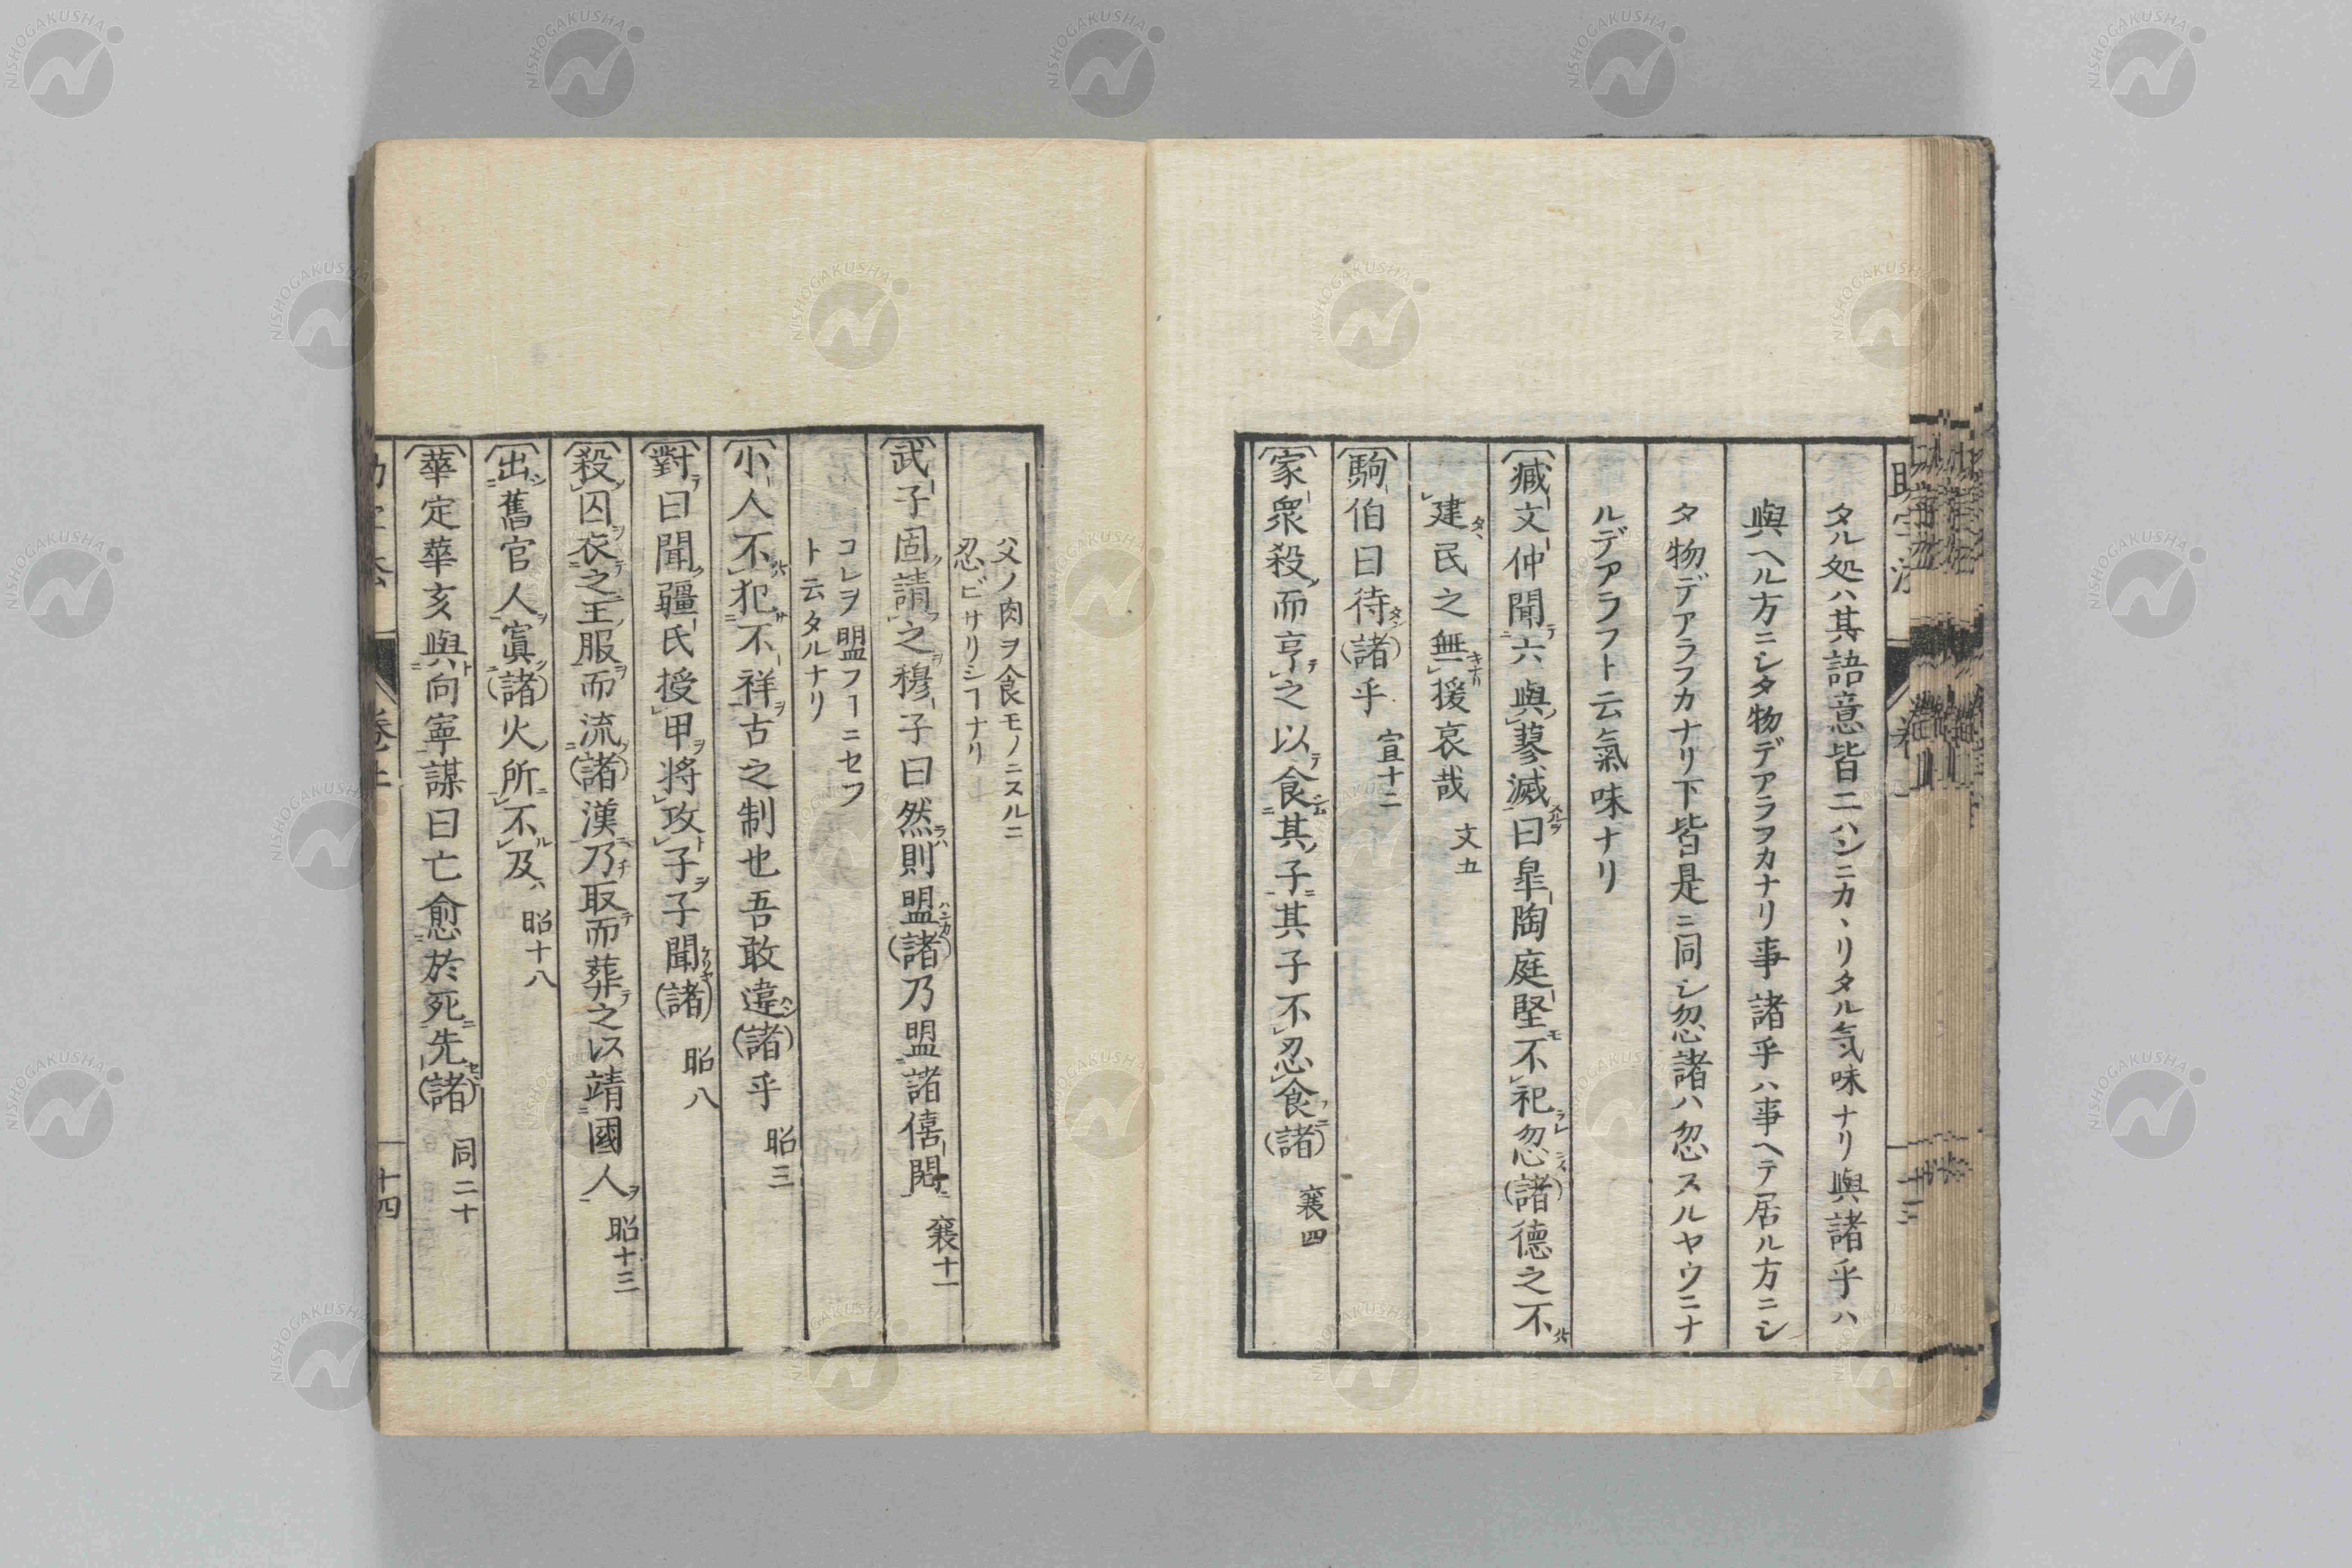 タル処ハ其語意皆ニハシニカヽリタル気味ナリ與諸乎ハ
與ヘル方ニシタ物デアラフカナリ事諸乎ハ事ヘテ居ル方ニシ
タ物デアラフカナリ下皆是ニ同シ忽諸ハ忽スルヤウニナ
ルデアラフト云氣味ナリ
臧文仲聞六與蓼滅曰皐陶庭堅不祀忽(諸)德之不
建民之無援哀哉 文五
駒伯曰待(諸)乎 宣十二
家衆殺而亨之以食其子其子不忍食(諸) 襄四
ハ父ノ肉ヲ食モノニスルニ
忍ビサリシヿナリ
武子固請之穆子曰然則盟(諸)乃盟諸僖閎 襄十一
コレヲ盟フヿニセフ
ト云タルナリ
小人不犯不祥古之制也吾敢違(諸)乎 昭三
對曰聞彊氏授甲將攻子子聞(諸) 昭八
殺囚衣之王服而流(諸)漢乃取而葬之以靖國人 昭十三
出舊官人寘(諸)火所不及 昭十八
華定華亥與向寧謀曰亡愈於死先(諸) 同二十
十四
NISHOGAKUSHA